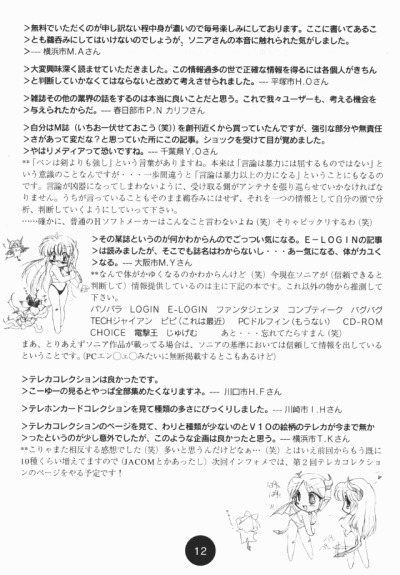 >無料でいただくのが申し訳ない程中身が濃いので毎号楽しみにしております。ここに書いてあるこ
とも鵜呑みにしてはいけないのでしょうが、ソニアさんの本音に触れられた気がしました。
>--- 横浜市M.Aさん
>大変興味深く読ませていただきました。この情報過多の世で正確な情報を得るには各個人がきちん
と判断していかなくてはならないと改めて考えさせられました。--- 平塚市H.Oさん
>雑誌その他の業界の話をするのは本当に良いことだと思う。これで我々ユーザーも、考える機会を
>与えられたからだ。--- 春日部市P.N カリフさん
>自分はM誌(いちお一伏せておこう(笑))を創刊近くから買っていたんですが、強引な部分や無責任
>さがあって変だな?と思っていた所にこの記事。ショックを受けて目が覚めました。
>やはりメディアって恐いですね。--- 千葉県Y.Oさん
**「ペンは剣よりも強し」という言葉がありますね。本来は「言論は暴力には屈するものではない」と
いう意識のことなんですが・・・一歩間違うと「言論は暴力以上の力になる」ということにもなるの
です。言論が凶器になってしまわないように、受け取る側がアンテナを張り巡らせていかなければな
りません。うちが言っていることもそのまま鵜呑みにはせず、それを一つの情報として自分の頭で分
析、判断していくようにしていって下さい。
……確かに、普通のHソフトメーカーはこんなこと言わないよね(笑)そりゃビックリするわ(笑)
>その某誌というのが何かわからんのでごっつい気になる。E-LOGINの記事
>は読みましたが、そこでも誌名はわからないし・・・あー気になる、体がカユく
>なる。--- 大阪市M.Yさん
**なんで体がかゆくなるのかわからんけど(笑)今現在ソニアが(信頼できると
判断して)情報提供しているのは主に下記の本です。これ以外の物から推測して
下さい。
パソパラ LOGIN E-LOGIN ファンタジェンヌ コンプティーク バグバグ
TECHジャイアン ピピ(これは最近) PCドルフィン(もうない) CD-ROM
CHOICE 電撃王 じゅげむ あと・・・忘れてたらすまん(笑)
まあ、とりあえずソニア作品が載ってる場合は、ソニアの基準においては信頼して情報を出している
ということです。(PCエン○ェ○みたいに無断掲載するとこもあるけど)
>テレカコレクションは良かったです。
>こーゆーの見るとやっぱ全部集めたくなりますネ。--- 川口市H.Fさん
>テレホンカードコレクションを見て種類の多さにびっくりしました。--- 川崎市I.Hさん
>テレカコレクションのページを見て、わりと種類が少ないのとV10の絵柄のテレカが今まで無か
>ったというのが少し意外でしたが、このような企画は良かったと思う。--- 横浜市T.Kさん
**こりゃまた相反する感想でした(笑)多いと思うんだけどなぁ…(笑)とはいえ前回からもう既に
10種くらい増えてますので(JACOMとかあったし)次回インフォメでは、第2回テレカコレクション
のページをやる予定です!
12